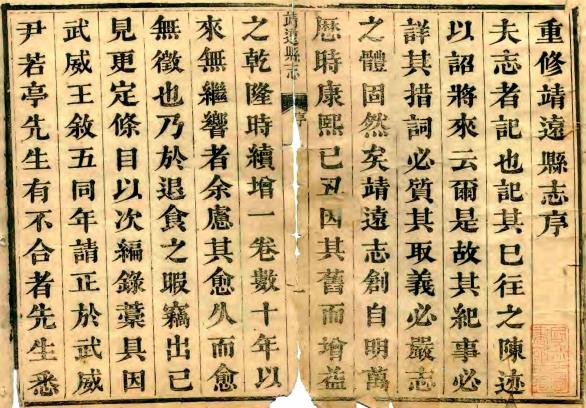 重修靖遠縣志序
夫志者記也記其已往之陳迹
以詔將來云爾是故其紀事必
詳其措詞必質其取義必嚴志
之體固然矣靖遠志創自明萬
歷時康熙己丑因其舊而增益
靖遠縣志 序
之乾隆時續增一卷數十年以
來無繼響者余慮其愈久而愈
無徵也乃於退食之暇竊出己
見更定條目以次編錄藁具因
武威王敘五同年請正於武威
尹若亭先生有不合者先生悉